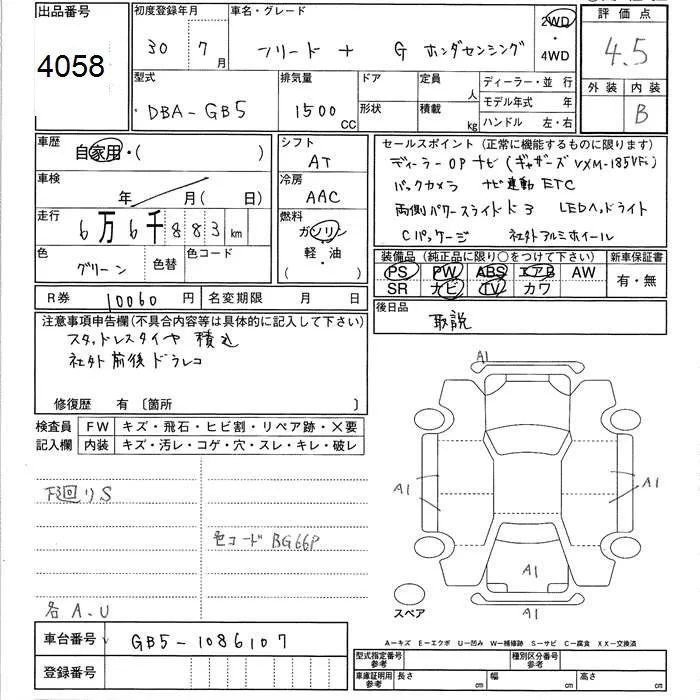 出品番号
4058
初度登録年月
30 7月
車名・グレード
フリード + G ホンダセンシング
2WD
・
4WD
評価点
4.5
外装 内装
B
型式
DBA-GB5
排気量
1500cc
ドア
形状
定員
人
積載
kg
ディーラー・並行
モデル年式 年
ハンドル 左・右
車歴
自家用・( )
車検
年 月(日)
走行
6万6千883km
色
グリーン
色替
色コード
シフト
AT
冷房
AAC
燃料
ガソリン
・
軽・油
( )
セールスポイント(正常に機能するものに限ります)
ディーラーOPナビ(ギャザーズVXM-185VFi)
バックカメラ ナビ連動ETC
両側パワースライドドア LEDヘッドライト
Cパッケージ 社外アルミホイール
装備品(純正品に限り○をつけて下さい)
PS PW ABS エアB AW
SR ナビ TV カワ
新車保証書
有・無
R券 10060円
名変期限 月 日
後日品
取説
注意事項申告欄(不具合内容等は具体的に記入して下さい)
スタッドレスタイヤ 積込
社外前後ドラレコ
修復歴 有〔箇所 〕
検査員
記入欄
FW キズ・飛石・ヒビ割・リペア跡・×要
内装 キズ・汚レ・コゲ・穴・スレ・キレ・破レ
下回りS
色コード BG66P
各A.U
A1
A1
A1
A1
A1
スペア
A-キズ E-エクボ U-凹み W-補修跡 S-サビ C-腐食 XX-交換済
車台番号 GB5-1086107
登録番号
型式指定番号
参考
種別区分番号
参考
車庫証明用
参考
長さ cm 幅 cm 高さ cm